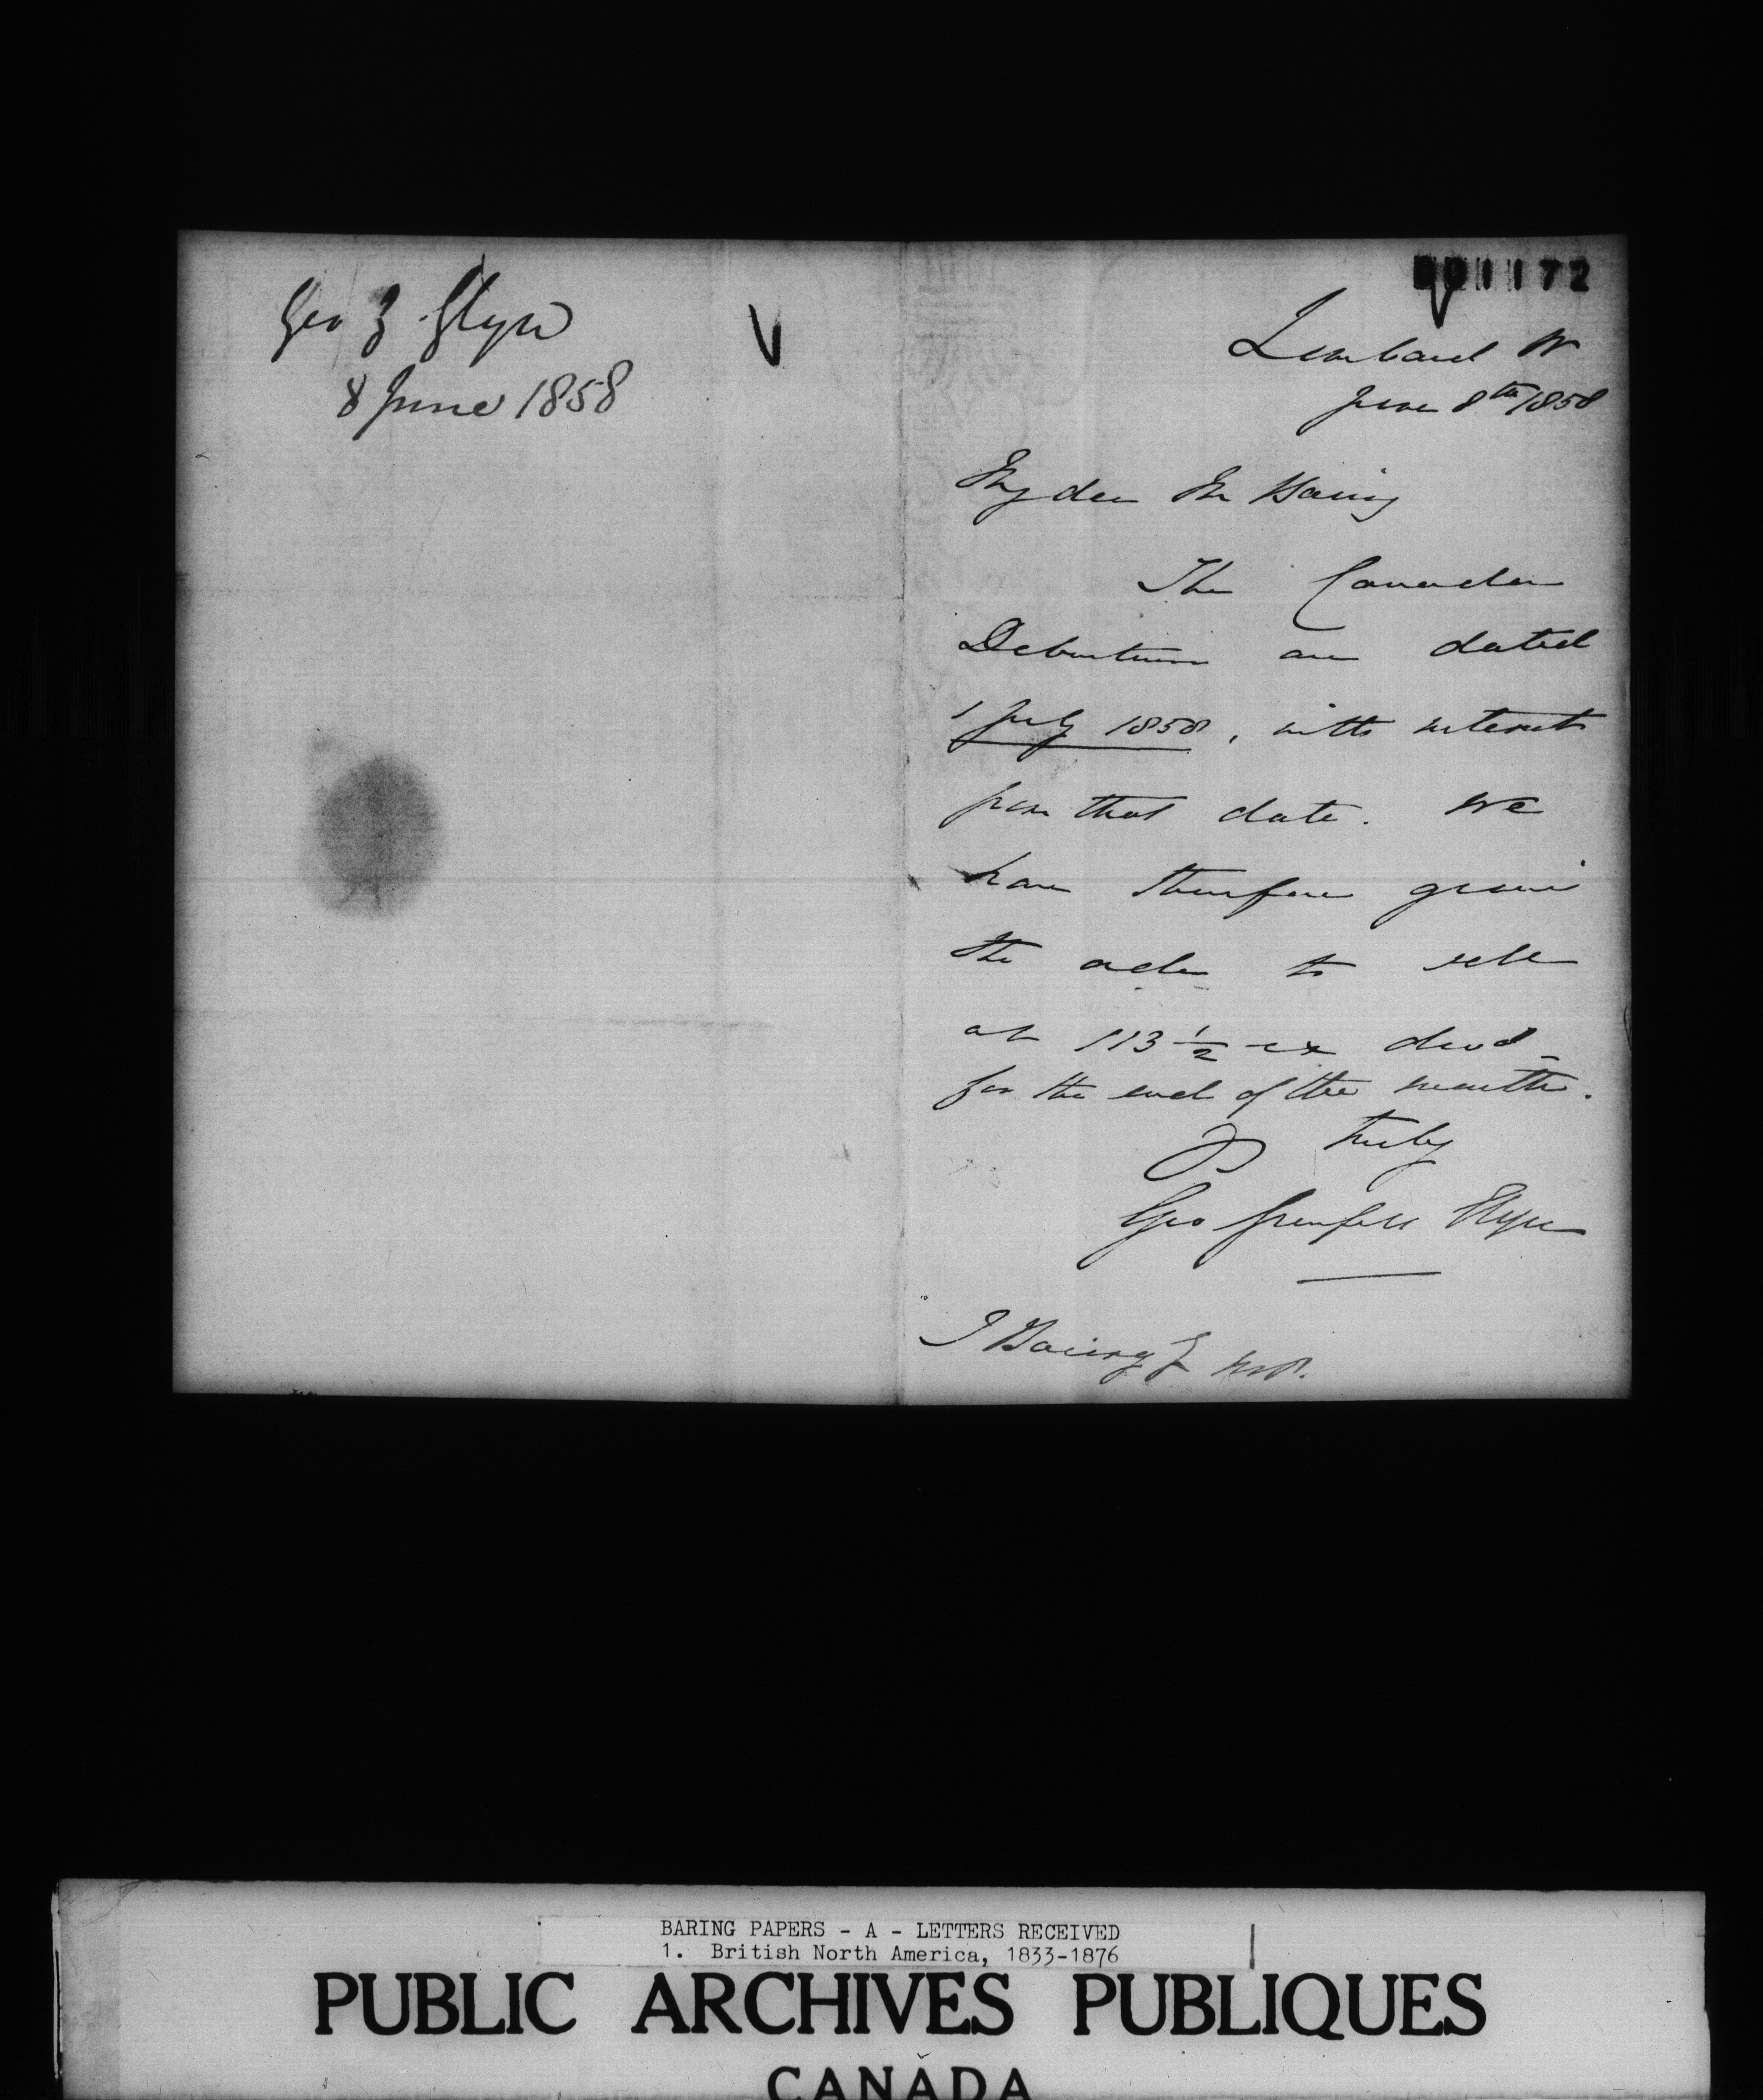 Geo G. Glyn
8 June 1858
001172
Lombard St
June 8th 1858
My dear Mr Baring
The Canada
Debentures are dated
1 July 1858, with interest
from that date. We
have therefore given
the order to sell
at 113 1/2 ex divd
for the end of the month.
truly
Geo Grenfell Glyn
T Baring Esq M.P.
BARING PAPERS - A - LETTERS RECEIVED
1. British North America, 1833-1876
PUBLIC ARCHIVES PUBLIQUES
CANADA